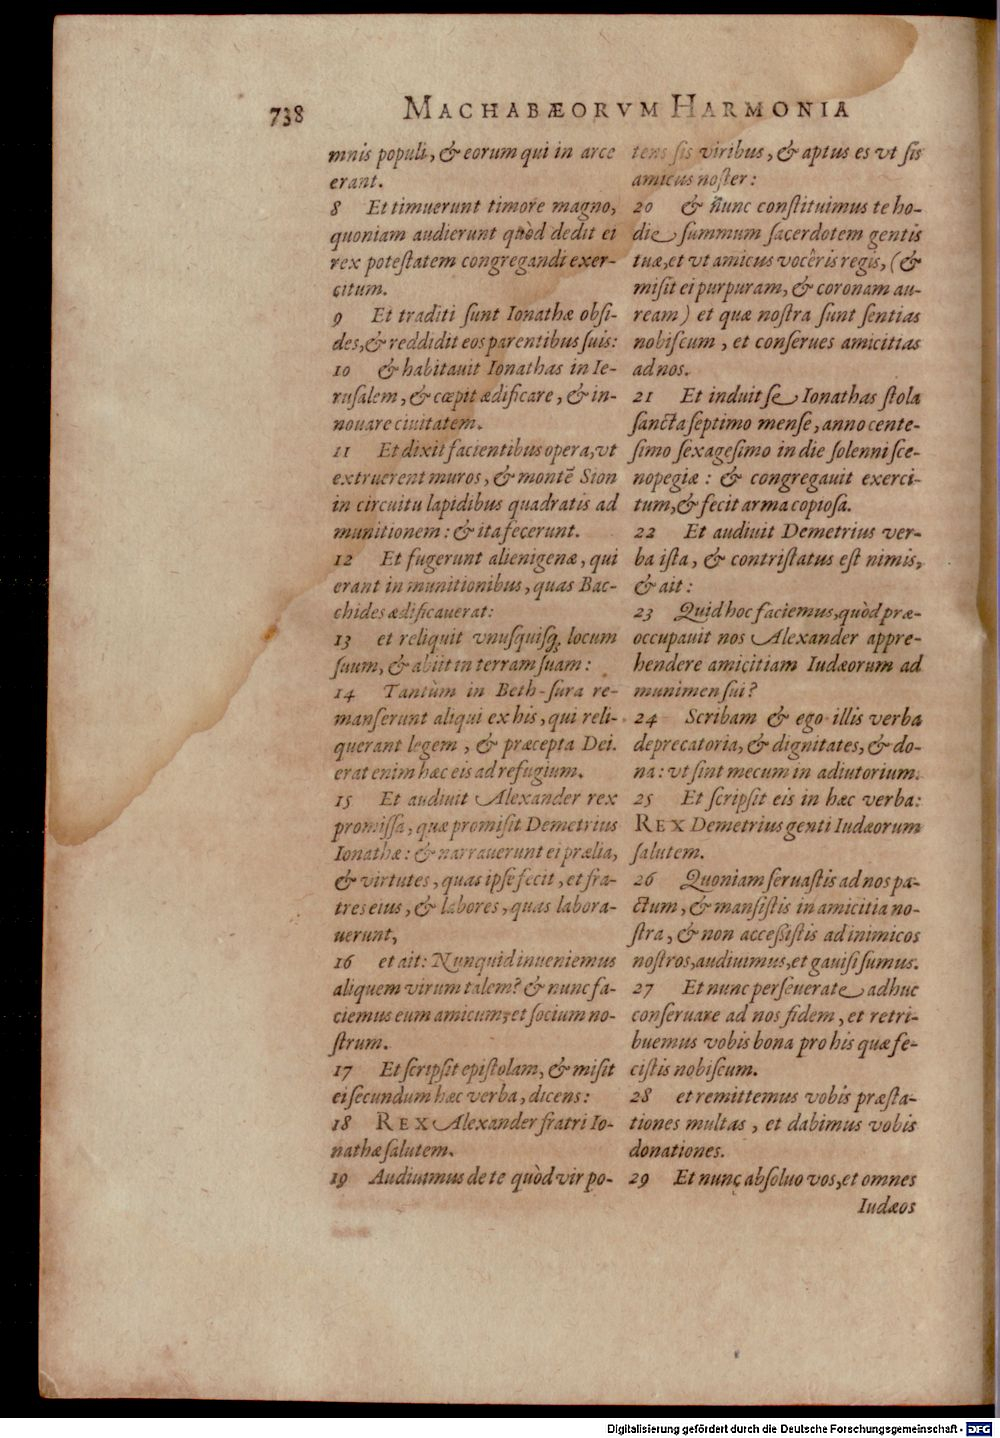 738 MACHABÆORVM HARMONIA
mnis populi, & eorum qui in arce
erant.
8 Et timuerunt timore magno,
quoniam audierunt quòd dedit ei
rex potestatem congregandi exer-
citum.
9 Et traditi sunt Ionathæ obsi-
des, & reddidit eos parentibus suis:
10 & habitauit Ionathas in Ie-
rusalem, & cœpit ædificare, & in-
nouare ciuitatem.
11 Et dixit facientibus opera, vt
extruerent muros, & montē Sion
in circuitu lapidibus quadratis ad
munitionem: & ita fecerunt.
12 Et fugerunt alienigenæ, qui
erant in munitionibus, quas Bac-
chides ædificauerat:
13 et reliquit vnusquisq; locum
suum, & abiit in terram suam:
14 Tantùm in Beth-sura re-
manserunt aliqui ex his, qui reli-
querant legem, & præcepta Dei.
erat enim hæc eis ad refugium.
15 Et audiuit Alexander rex
promissa, quæ promisit Demetrius
Ionathæ: & narrauerunt ei prælia,
& virtutes, quas ipse fecit, et fra-
tres eius, & labores, quas labora-
uerunt,
16 et ait: Nunquid inueniemus
aliquem virum talem? & nunc fa-
ciemus eum amicum, et socium no-
strum.
17 Et scripsit epistolam, & misit
ei secundum hæc verba, dicens:
18 REX Alexander fratri Io-
nathæ salutem.
19 Audiuimus de te quòd vir po-
tens sis viribus, & aptus es vt sis
amicus noster:
20 & nunc constituimus te ho-
die summum sacerdotem gentis
tuæ, et vt amicus vocêris regis, (&
misit ei purpuram, & coronam au-
ream) et quæ nostra sunt sentias
nobiscum, et conserues amicitias
ad nos.
21 Et induit se Ionathas stola
sancta septimo mense, anno cente-
simo sexagesimo in die solenni sce-
nopegiæ: & congregauit exerci-
tum, & fecit arma copiosa.
22 Et audiuit Demetrius ver-
ba ista, & contristatus est nimis,
& ait:
23 Quid hoc faciemus, quòd præ-
occupauit nos Alexander appre-
hendere amicitiam Iudæorum ad
munimen sui?
24 Scribam & ego illis verba
deprecatoria, & dignitates, & do-
na: vt sint mecum in adiutorium.
25 Et scripsit eis in hæc verba:
REX Demetrius genti Iudæorum
salutem.
26 Quoniam seruastis ad nos pa-
ctum, & mansistis in amicitia no-
stra, & non accessistis ad inimicos
nostros, audiuimus, et gauisi sumus.
27 Et nunc perseuerate adhuc
conseruare ad nos fidem, et retri-
buemus vobis bona pro his quæ fe-
cistis nobiscum.
28 et remittemus vobis præsta-
tiones multas, et dabimus vobis
donationes.
29 Et nunc absoluo vos, et omnes
Iudæos
Digitalisierung gefördert durch die Deutsche Forschungsgemeinschaft - DFG